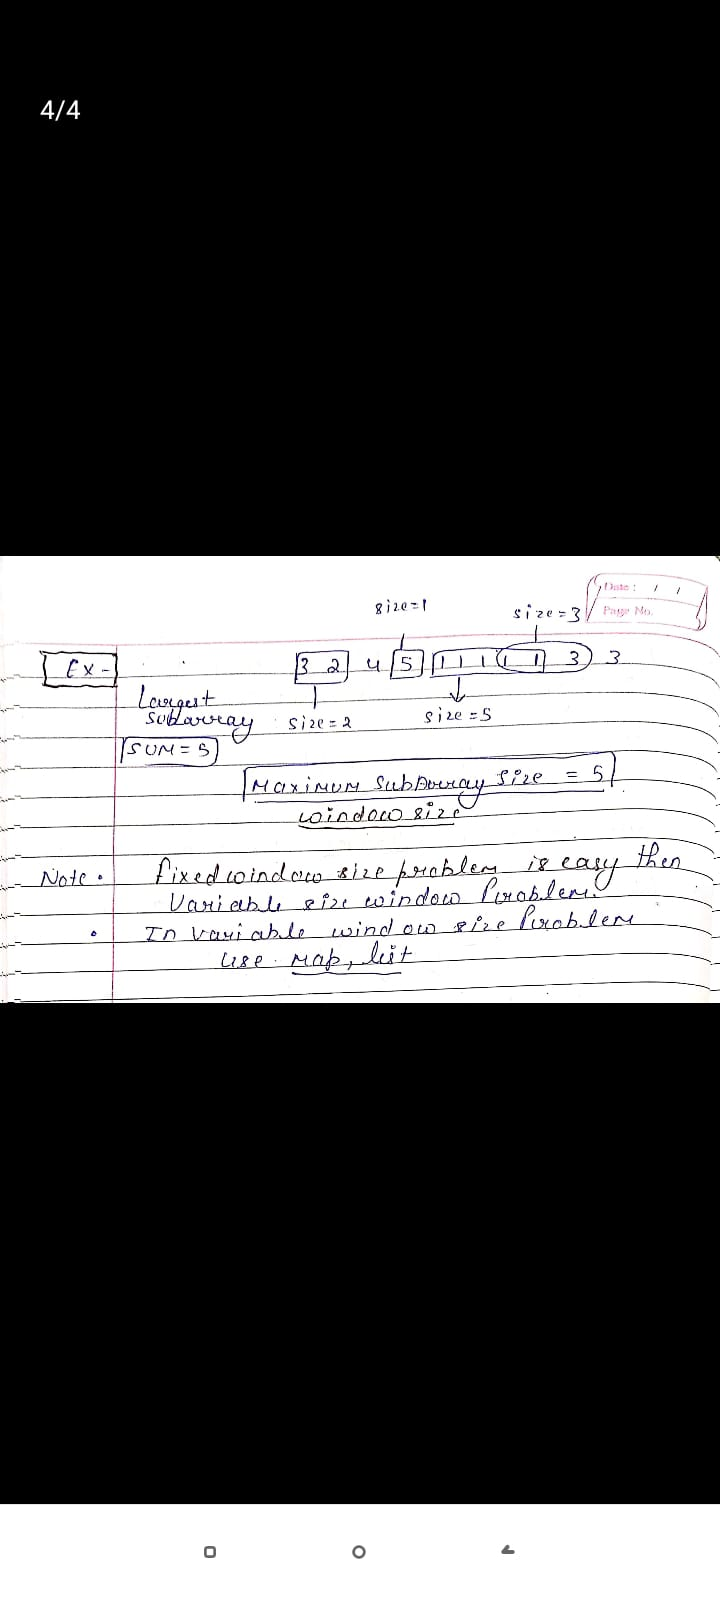 4/4
Date : / /
Page No.
size=1
size=3
Ex-
3 2 4 5 1 1 1 1 1 3 3
Largest
Subarray
size=2
size=5
SUM=5
Maximum SubArray Size = 5
window size
Note •
fixed window size problem is easy then
Variable size window Problem.
• In variable window size Problem
use. map, list